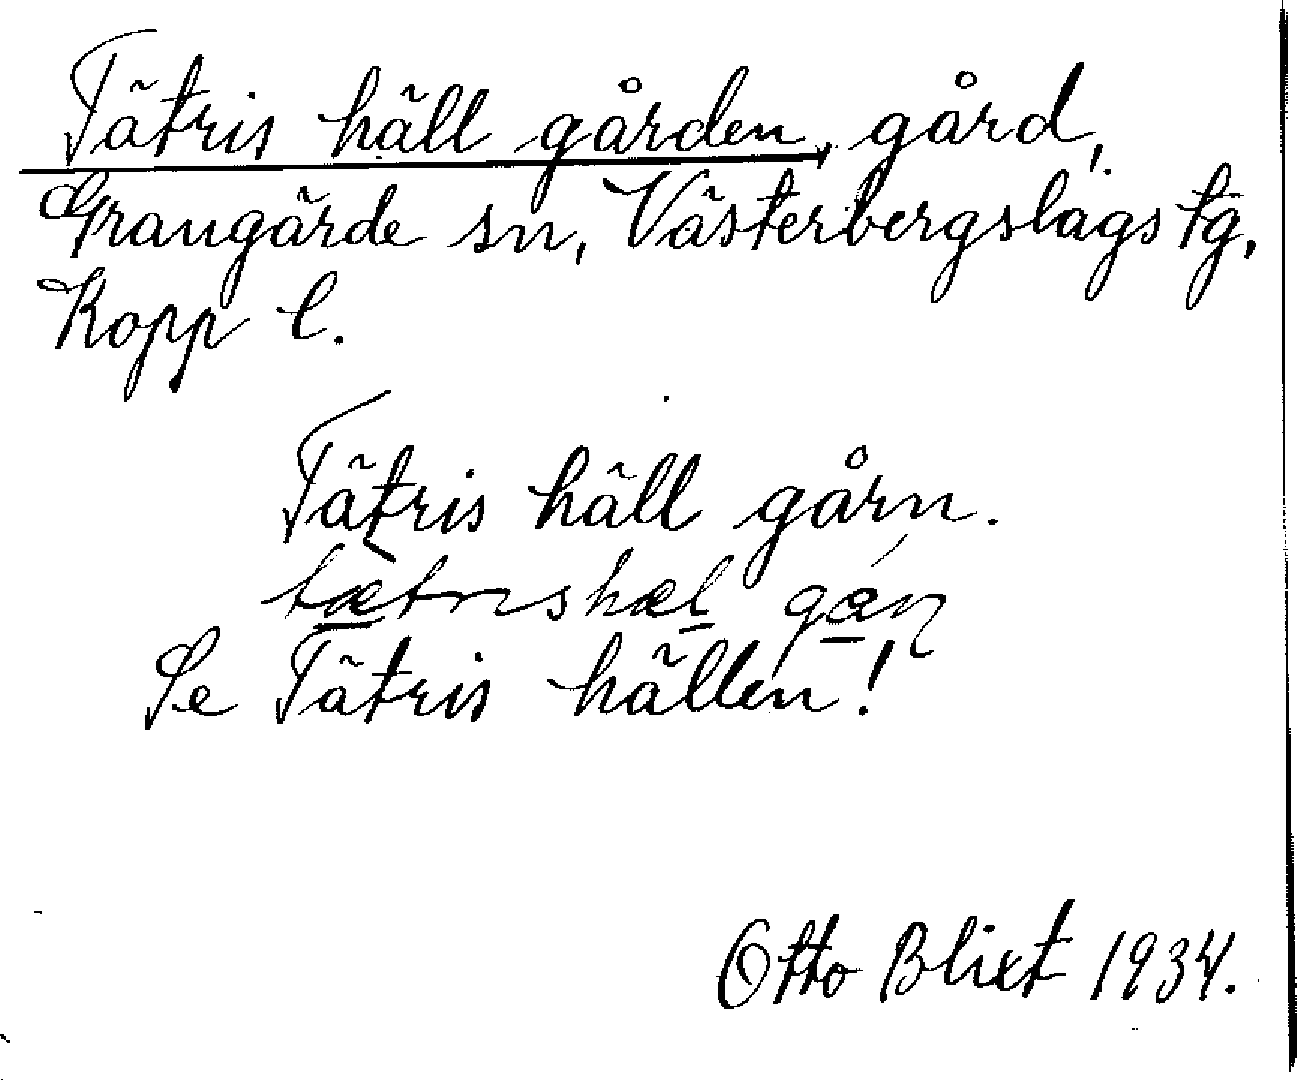 Tätris häll gården, gård,
Grangärde sn, Västerbergslags tg,
Kopp l.
Tätris häll gårn.
Se Tätris hällen!
Otto Blixt 1934.